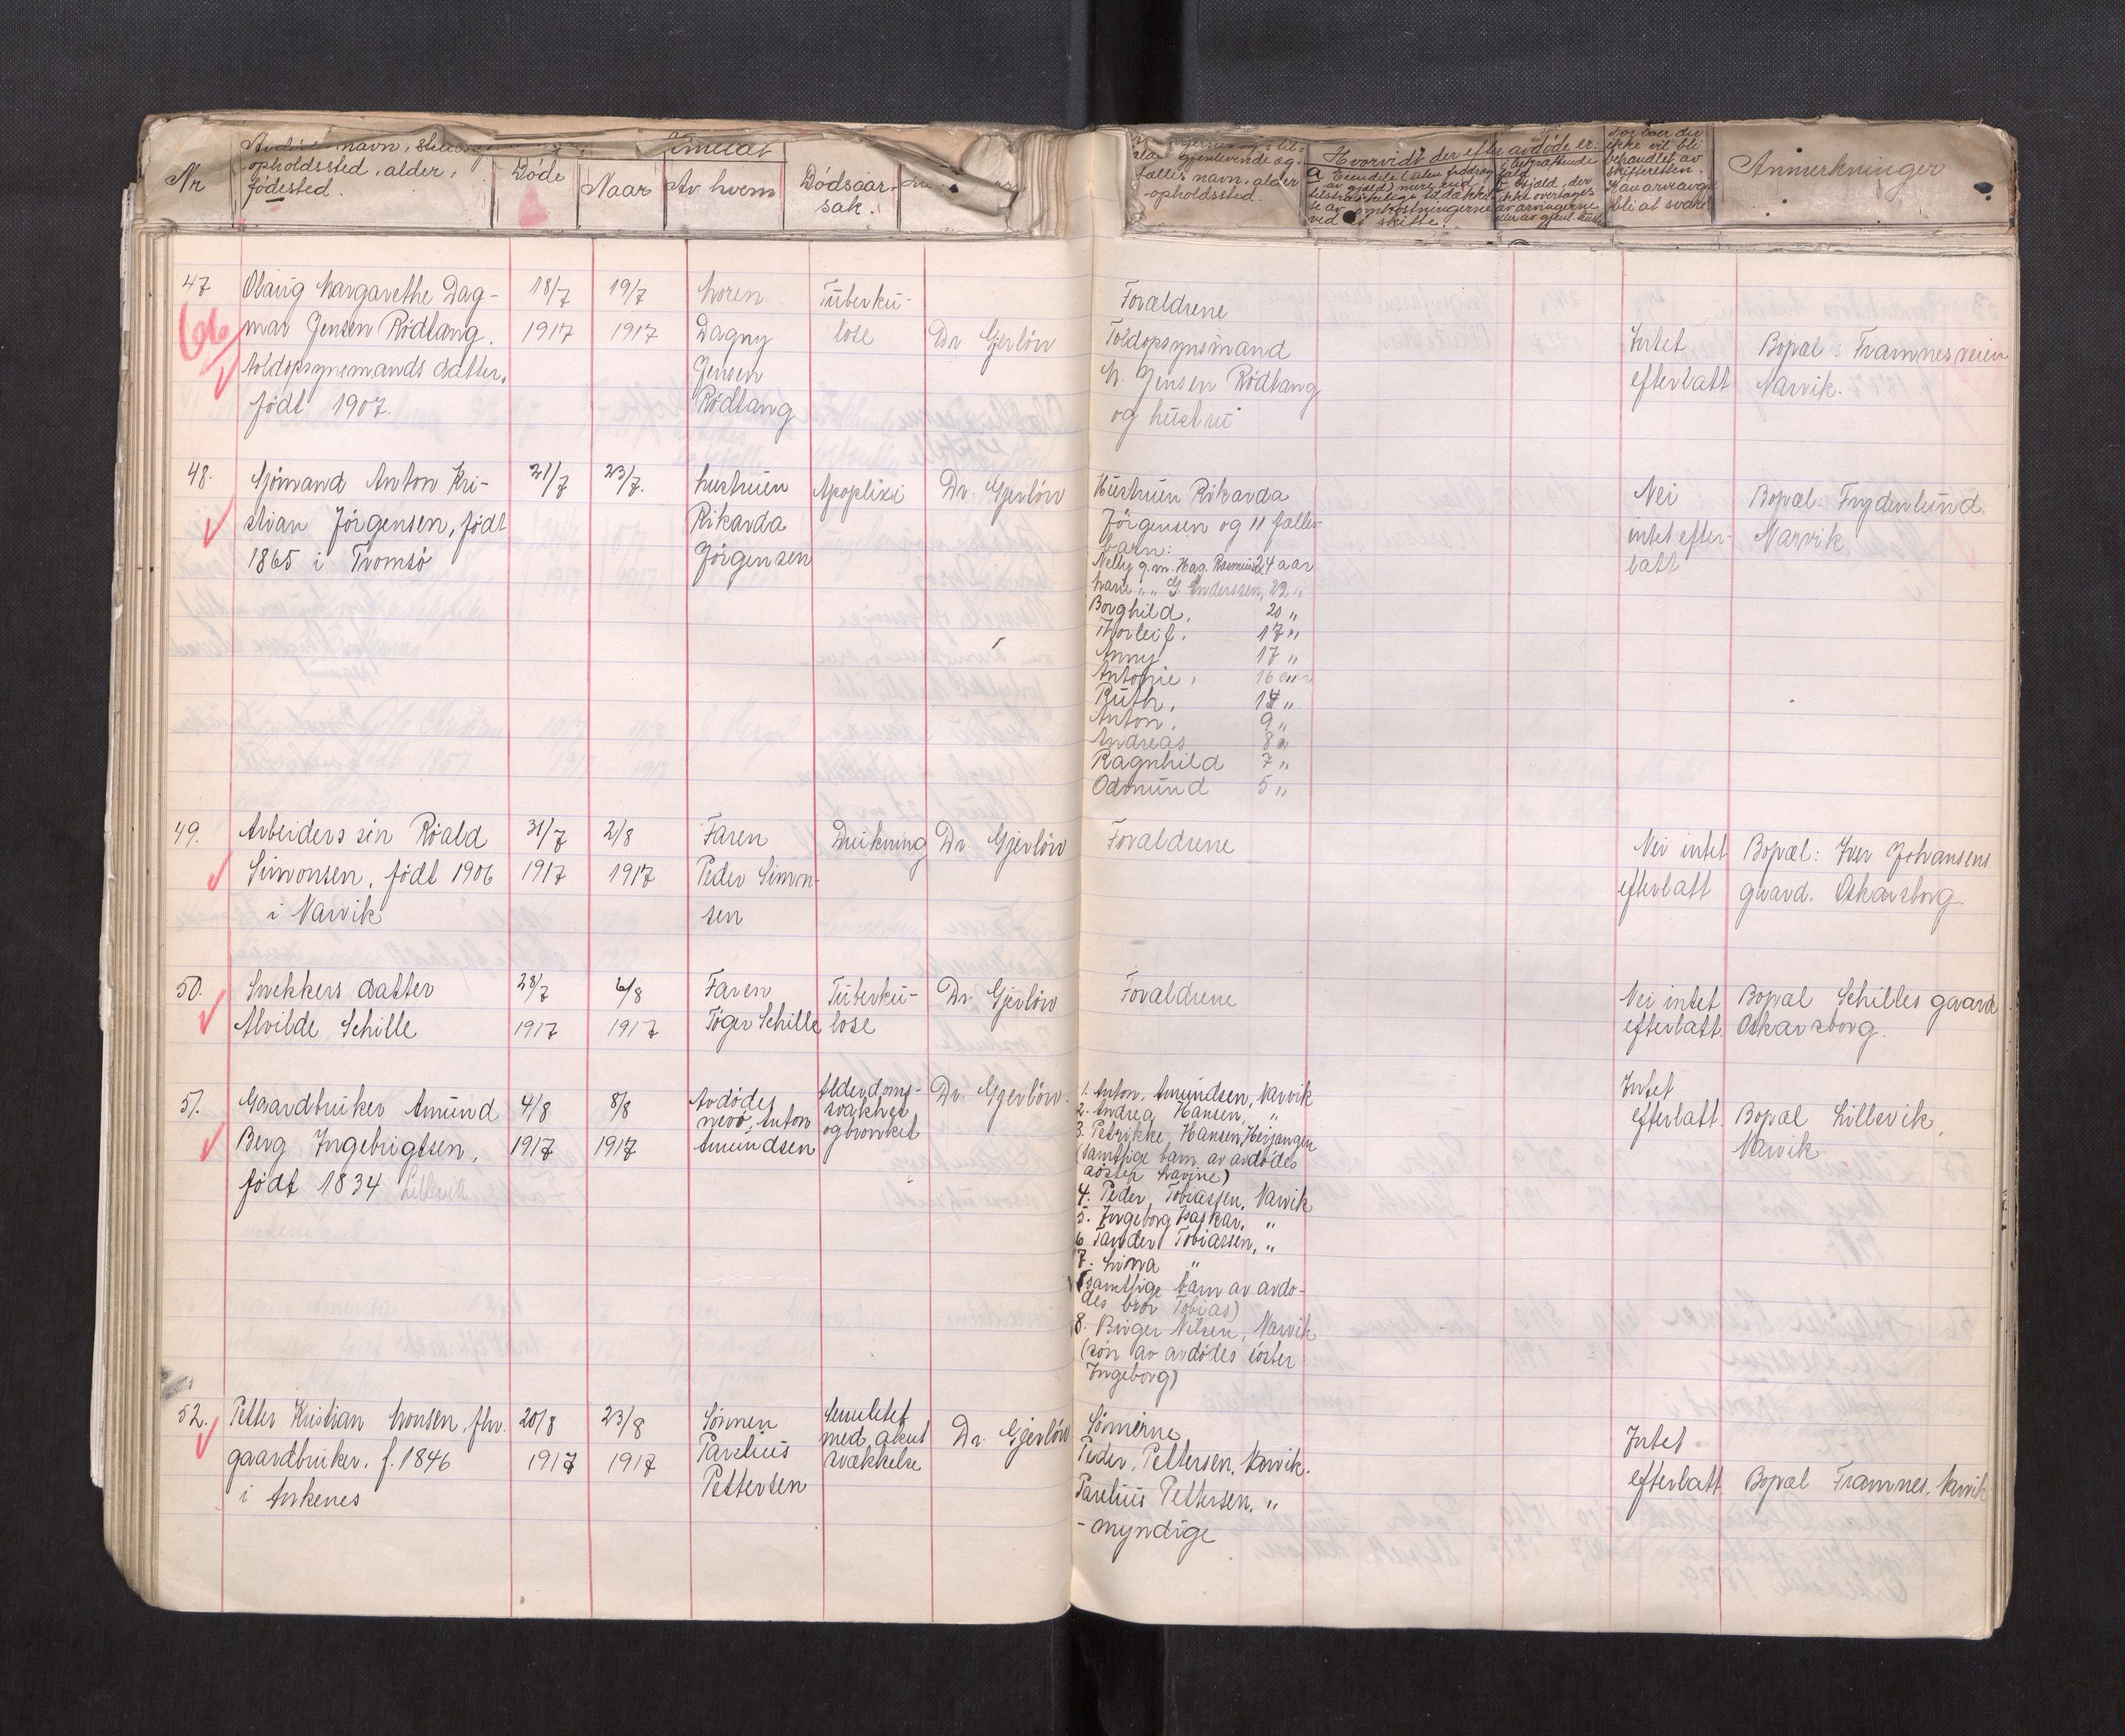 Nr
navn,
opholdssted, alder,
fødested.
Døde
Naar
Av hvem
Dødsaar-
sak.
fælles navn, alder
opholdssted.
Hvorvidt der efter avdøde er:
ved skifte.
ikke vil bli
behandlet av
skifteretten.
bli at svare
Anmerkninger
47
Olaug Margarethe Dag-
mar Jensen Rødtang.
toldopsynsmands datter,
født 1907.
18/7
1917
19/7
1917
Moren
Dagny
Jensen
Rødtang
Tuberku-
lose
Dr Gjerløw
Forældrene
Toldopsynsmand
M. Jensen Rødtang
og hustru
Intet
efterlatt
Bopæl: Framnesveien
Narvik.
48.
Sjømand Anton Kri-
stian Jørgensen, født
1865 i Tromsø
21/7
23/7.
hustruen
Rikarda
Jørgensen
Apoplexi
Dr. Gjerløw
Hustruen Rikarda
Jørgensen og 11 fælles-
barn:
Nelly g.m. Hag. Rasmuss. 24 aar
Marie " " G. Anderssen, 22 "
Borghild, 20 "
Thorleif, 17 "
Anny 17 "
Antonie, 16 aar
Ruth, 14 "
Anton, 9 "
Andreas 8 "
Ragnhild 7 "
Odmund 5 "
Nei
intet efter-
latt
Bopæl: Frydenlund
Narvik
49.
Arbeiders søn Roald
Simonsen, født 1906
i Narvik
31/7
1917
2/8
1917
Faren
Peder Simon-
sen
Drukning
Dr. Gjerløw
Forældrene
Nei intet
efterlatt
Bopæl: Iver Johansens
gaard. Oskarsborg
50.
Snekkers datter
Alvilde Schille
28/7
1917
6/8
1917
Faren
Tøger Schille
Tuberku-
lose
Dr. Gjerløw
Forældrene
Nei intet
efterlatt.
Bopæl Schilles gaard
Oskarsborg.
51.
Gaardbruker Amund
Berg Ingebrigtsen,
født 1834 Lillevik
4/8
1917
8/8
1917
Avdødes
nevø, Anton
Amundsen
Alderdoms-
svakhet
og bronkit
Dr. Gjerløw.
1. Anton Amundsen, Narvik
2. Andrea Hansen, "
3. Petrikke Hansen, Herjangen
(samtlige barn av avdødes
søster Marine)
4. Peder Tobiassen, Narvik
5. Ingeborg Isaksen, "
6. Sander Tobiassen, "
7. Lina "
(samtlige barn av avdø-
des bror Tobias)
8. Birger Nilsen, Narvik
(søn av avdødes søster
Ingeborg)
Intet
efterlatt.
Bopæl Lillevik,
Narvik
52.
Petter Kristian Monsen, fhv.
gaardbruker. f. 1846
i Ankenes
20/8
1917
23/8
1917
Sønnen
Parelius
Pettersen
Senilitet
med akut
svækkelse
Dr. Gjerløw
Sønnerne
Peder Pettersen, Narvik.
Parelius Pettersen, "
- myndige
Intet
efterlatt.
Bopæl Framnes, Narvik